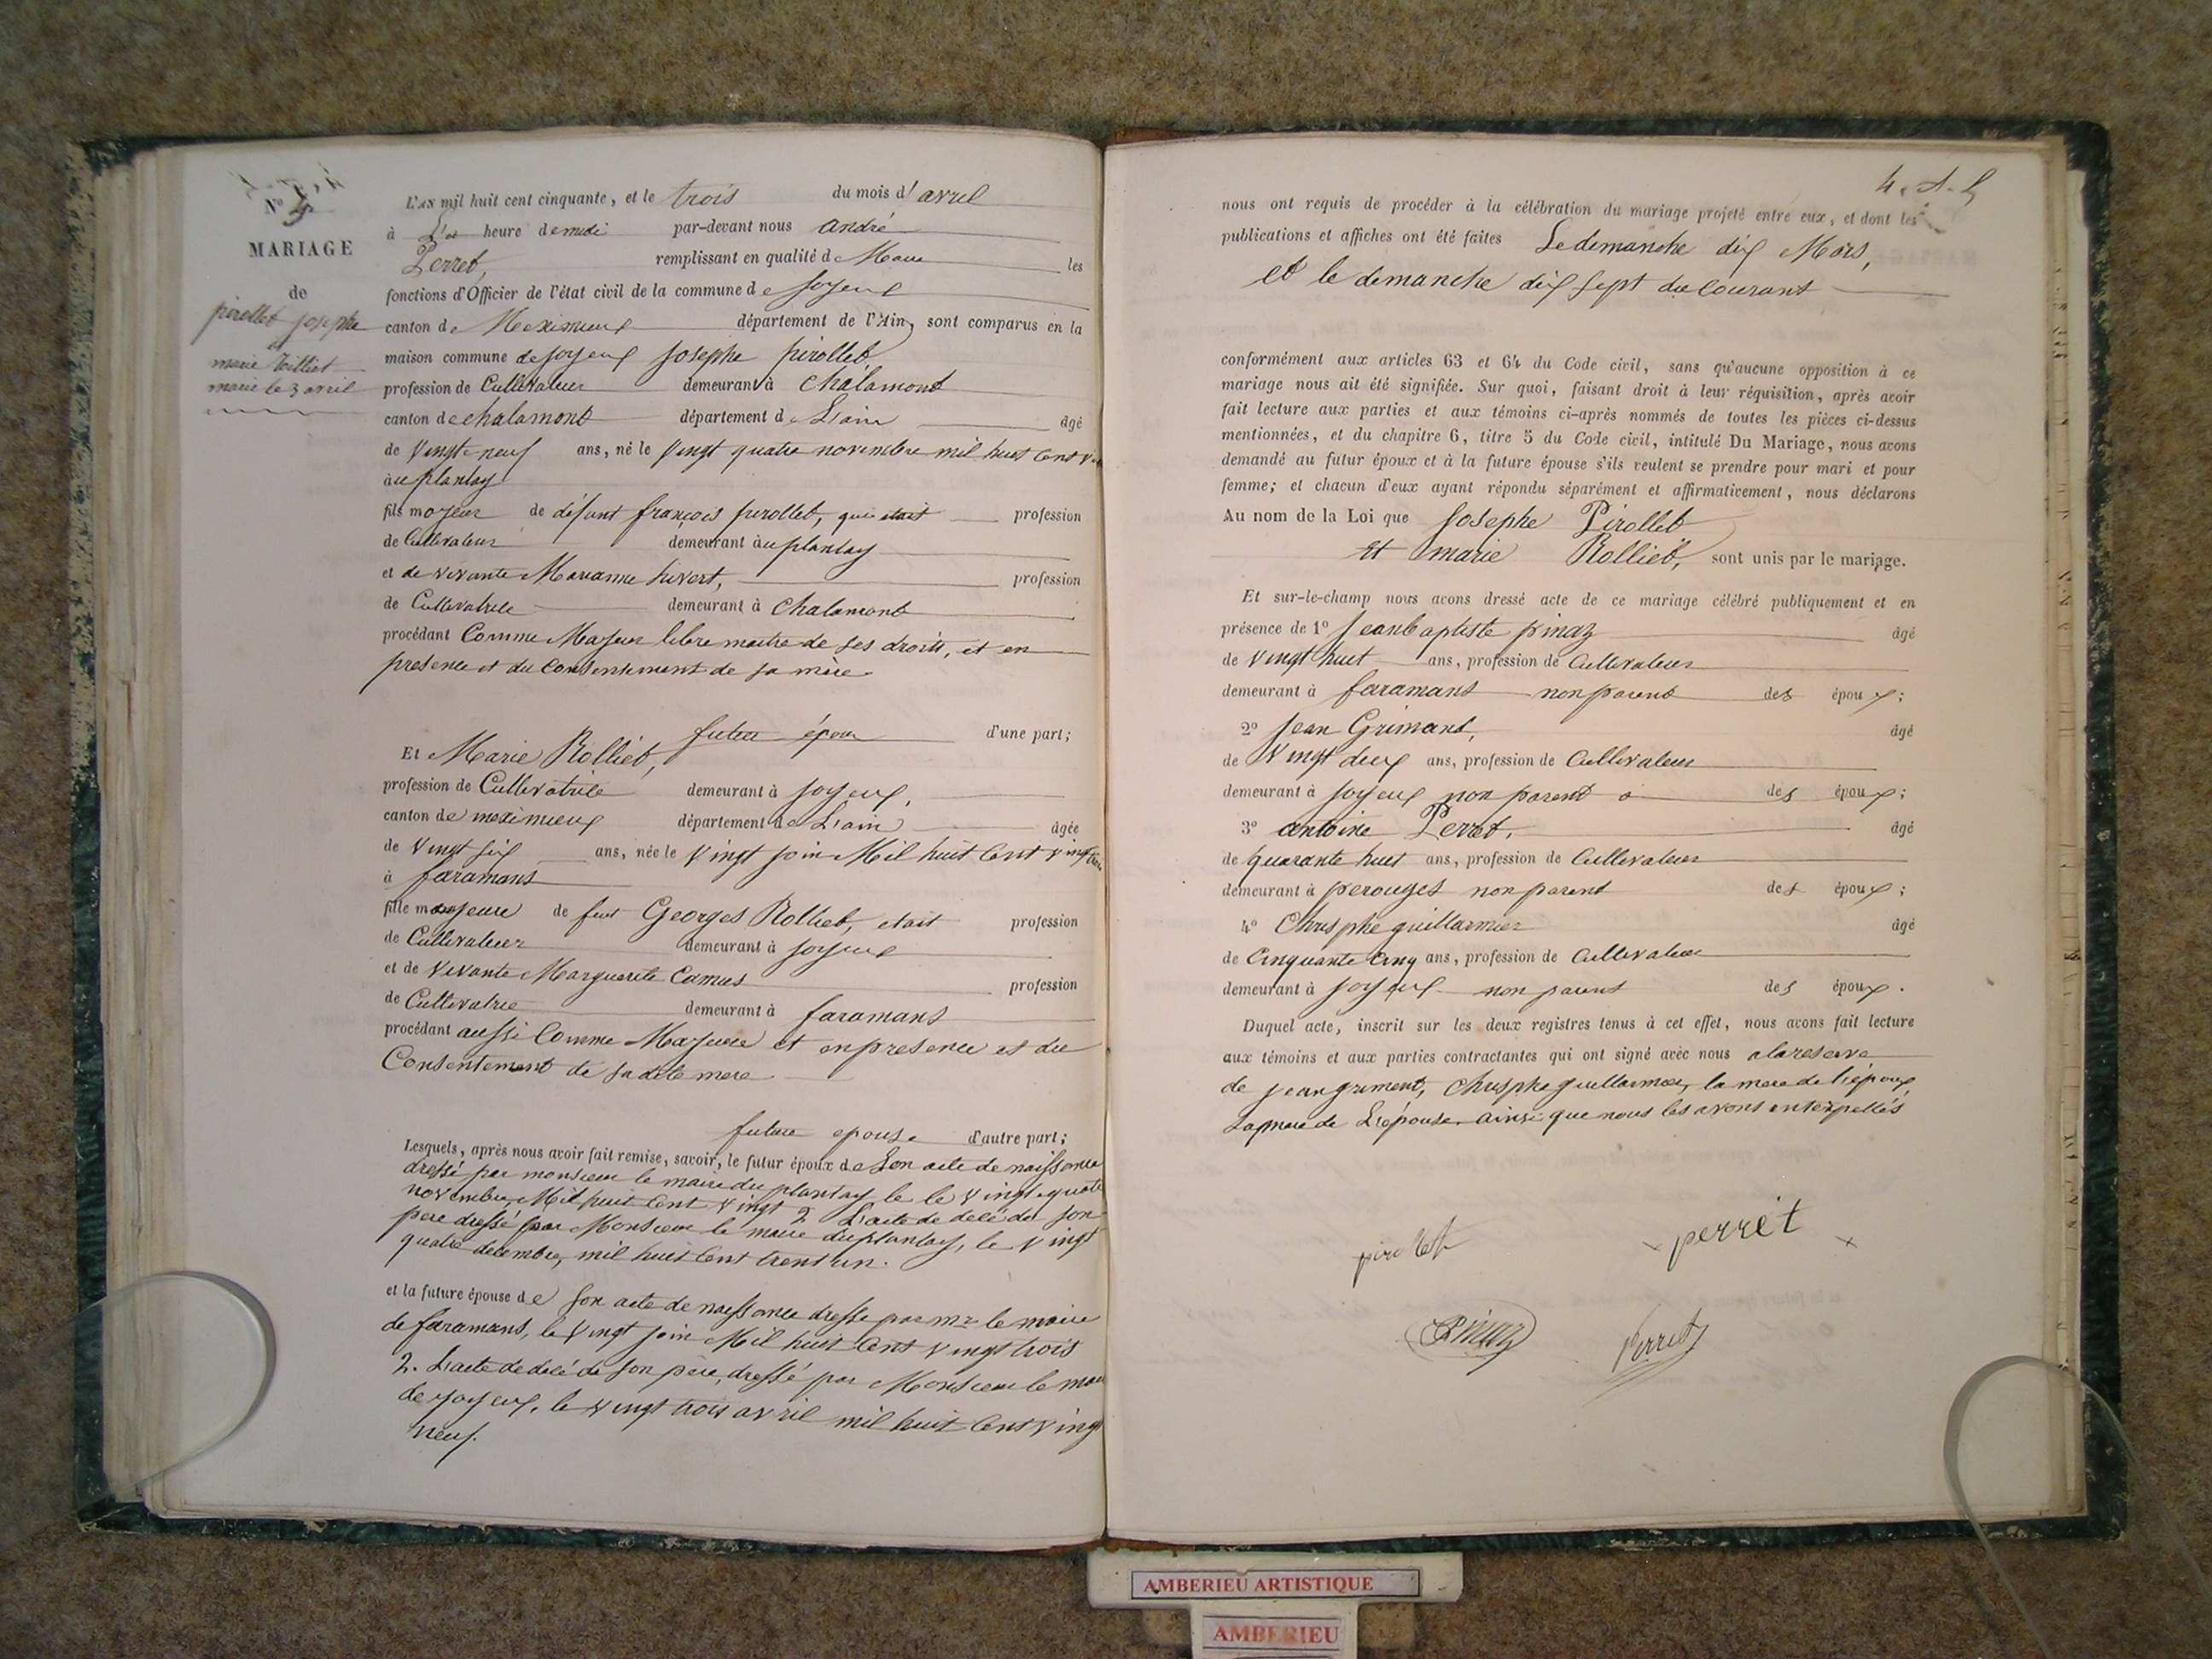 N° 4
MARIAGE
de
pirollet josephe
et
marie Rolliet
marie le 3 avril
L'AN mil huit cent cinquante, et le trois du mois d'avril
à L'a heure de midi par-devant nous andré
Perret, remplissant en qualité de Maire les
fonctions d'Officier de l'état civil de la commune de joyeux
canton de Meximieux département de l'Ain, sont comparus en la
maison commune de joyeux josephe pirollet
profession de Cultivateur demeurant à chalamont
canton de chalamont département de L'ain âgé
de Vingt-neuf ans, né le Vingt quatre novembre mil huit Cent
au plantay
fils majeur de défunt françois pirollet, qui était profession
de Cultivateur demeurant au plantay
et de vivante Marianne huvert, profession
de Cultivatrice demeurant à Chalamont
procédant Comme Majeur libre maitre de ses droits, et en
presence et du Consentement de sa mère
futur époux d'une part;
Et Marie Rolliet,
profession de Cultivatrice demeurant à joyeux,
canton de meximieux département de L'ain âgée
de Vingt six ans, née le Vingt join Mil huit Cent vingt trois
à faramans
fille majeure de feut Georges Rolliet, etait profession
de Cultivateur demeurant à joyeux
et de Vivante Marguerite Camus profession
de Cultivatrice demeurant à faramans
procédant aussi Comme Majeure et en presence et du
Consentement de sa dite mere
future epouse d'autre part;
Lesquels, après nous avoir fait remise, savoir, le futur époux de Son acte de naissance
dressé par monsieur le maire du plantay le le Vingt-quatre
novembre, Mil huit Cent Vingt 2 L'acte de décé de son
pere dressé par Monsieur le maire du plantay, le Vingt
quatre décembre, mil huit Cent trent un.
et la future épouse de Son acte de naissance dressé par mr le maire
de faramans, le Vingt join Mil huit Cent Vingt trois
2. L'acte de décé de son père, dressé par Monsieur le maire
de joyeux, le Vingt trois avril mil huit Cent Vingt
neuf.
nous ont requis de procéder à la célébration du mariage projeté entre eux, et dont les
publications et affiches ont été faites Le dimanche dix Mars,
et le dimanche dix sept du Courant
conformément aux articles 63 et 64 du Code civil, sans qu'aucune opposition à ce
mariage nous ait été signifiée. Sur quoi, faisant droit à leur réquisition, après avoir
fait lecture aux parties et aux témoins ci-après nommés de toutes les pièces ci-dessus
mentionnées, et du chapitre 6, titre 5 du Code civil, intitulé Du Mariage, nous avons
demandé au futur époux et à la future épouse s'ils veulent se prendre pour mari et pour
femme; et chacun d'eux ayant répondu séparément et affirmativement, nous déclarons
Au nom de la Loi que Josephe Pirollet
Et marie Rolliet, sont unis par le mariage.
Et sur-le-champ nous avons dressé acte de ce mariage célébré publiquement et en
présence de 1° jean baptiste pinaz âgé
de Vingt huit ans, profession de Cultivateur
demeurant à faramans non parent des époux;
2° jean Grimant, âgé
de Vingt deux ans, profession de Cultivateur
demeurant à joyeux non parent des époux;
3° antoine Perret, âgé
de quarante huit ans, profession de Cultivateur
demeurant à perouges non parent des époux;
4° Chrisphe guillarmier âgé
de Cinquante Cinq ans, profession de Cultivateur
demeurant à joyeux non parent des époux.
Duquel acte, inscrit sur les deux registres tenus à cet effet, nous avons fait lecture
aux témoins et aux parties contractantes qui ont signé avec nous a la reserve
de jean griment, Chrisphe guillarmier, la mere de l'époux,
La mere de L'épouse. ainsi que nous les avons interpellés
pirollet
perret
Pinaz
Perret
AMBERIEU ARTISTIQUE
AMBERIEU